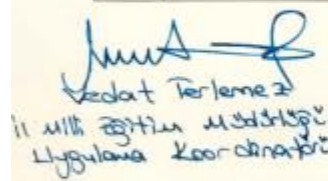 Vedat Terlemez
il milli Eğitim Müdürlüğü
Uygulama Koordinatörü